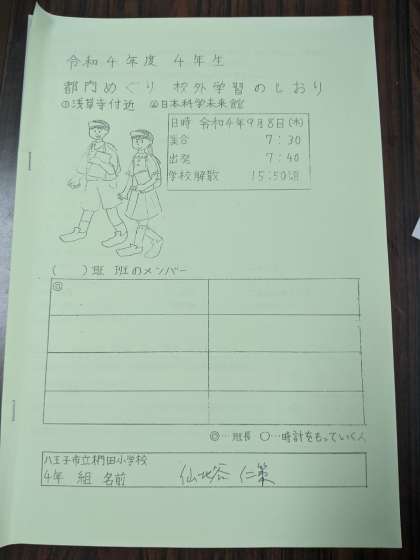 令和4年度 4年生
都内めぐり 校外学習のしおり
①浅草寺付近 ②日本科学未来館
日時 令和4年9月8日(木)
集合 7:30
出発 7:40
学校解散 15:50頃
( )班 班のメンバー
◎
◎…班長 ○…時計をもっていく人
八王子市立椚田小学校
4年 組 名前 仙北谷 仁策